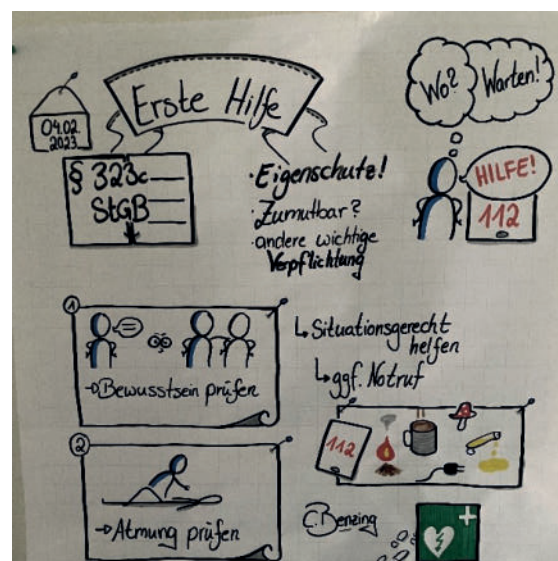 Erste Hilfe
04.02
2023
§ 323c
StGB
· Eigenschutz!
· Zumutbar?
· andere wichtige
Verpflichtung
Wo?
Warten!
HILFE!
112
1
→ Bewusstsein prüfen
↳ Situationsgerecht
helfen
↳ ggf. Notruf
112
2
→ Atmung prüfen
C. Benzing